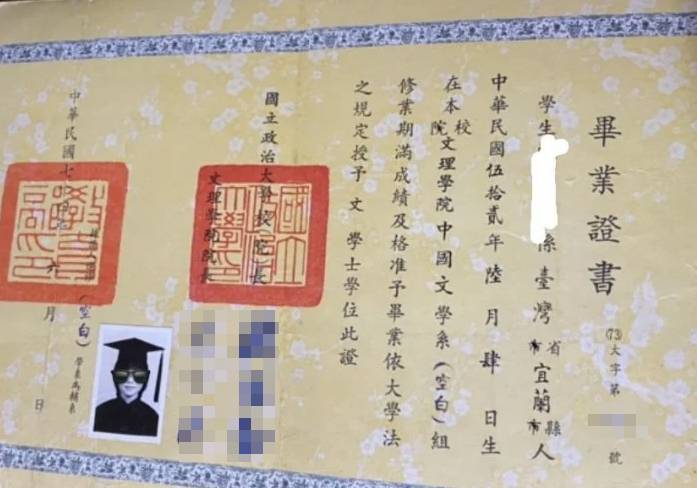 畢業證書
(73)大字第
號
學生
係臺灣省宜蘭縣人
市 市
中華民國伍拾貳年陸月肆日生
在本校院文理學院中國文學系(空白)組
修業期滿成績及格准予畢業依大學法
之規定授予文學士學位此證
國立政治大學校院長
文理學院院長
中華民國七
六月
日
(空白)學系為輔系